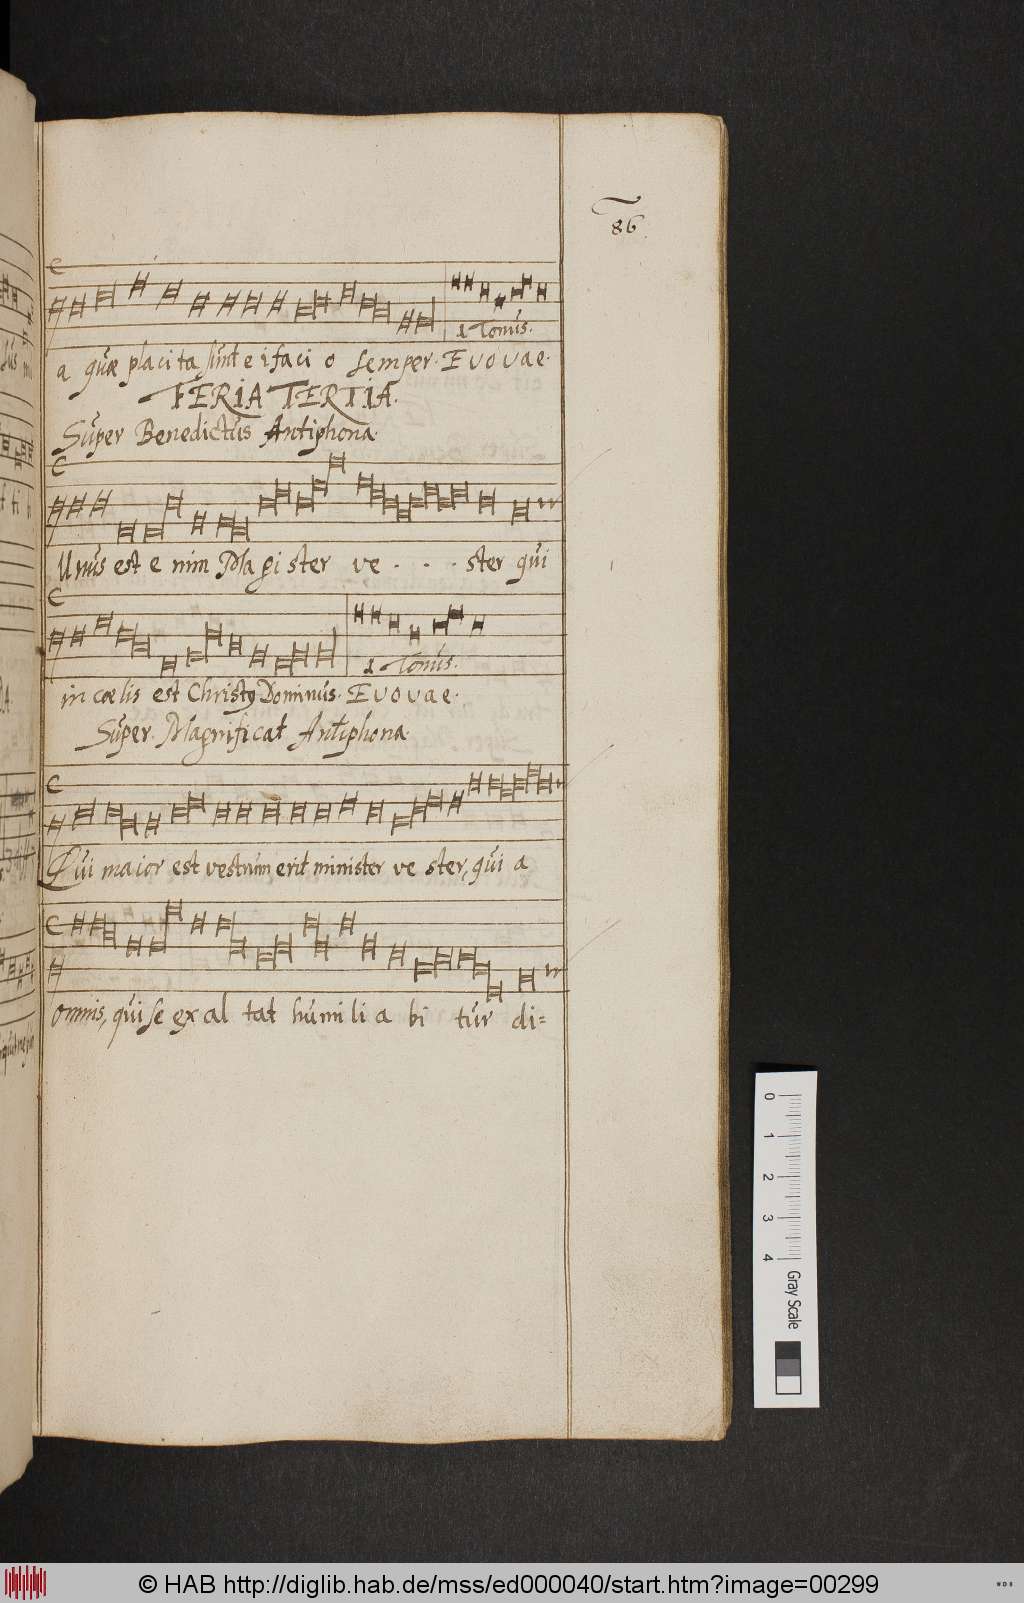 86.
1 Tonus.
a quæ placi ta sunt e i faci o semper. Evovae.
FERIA TERTIA.
Super Benedictus Antiphona.
Unus est e nim Magi ster ve . . . ster qui
1 Tonus.
in cœlis est Christ9 Dominus. Evovae.
Super Magnificat Antiphona.
Qui maior est vestrum erit minister ve ster, qui a
omnis, qui se ex al tat humili a bi tur di=
0 1 2 3 4
Gray Scale
© HAB http://diglib.hab.de/mss/ed000040/start.htm?image=00299